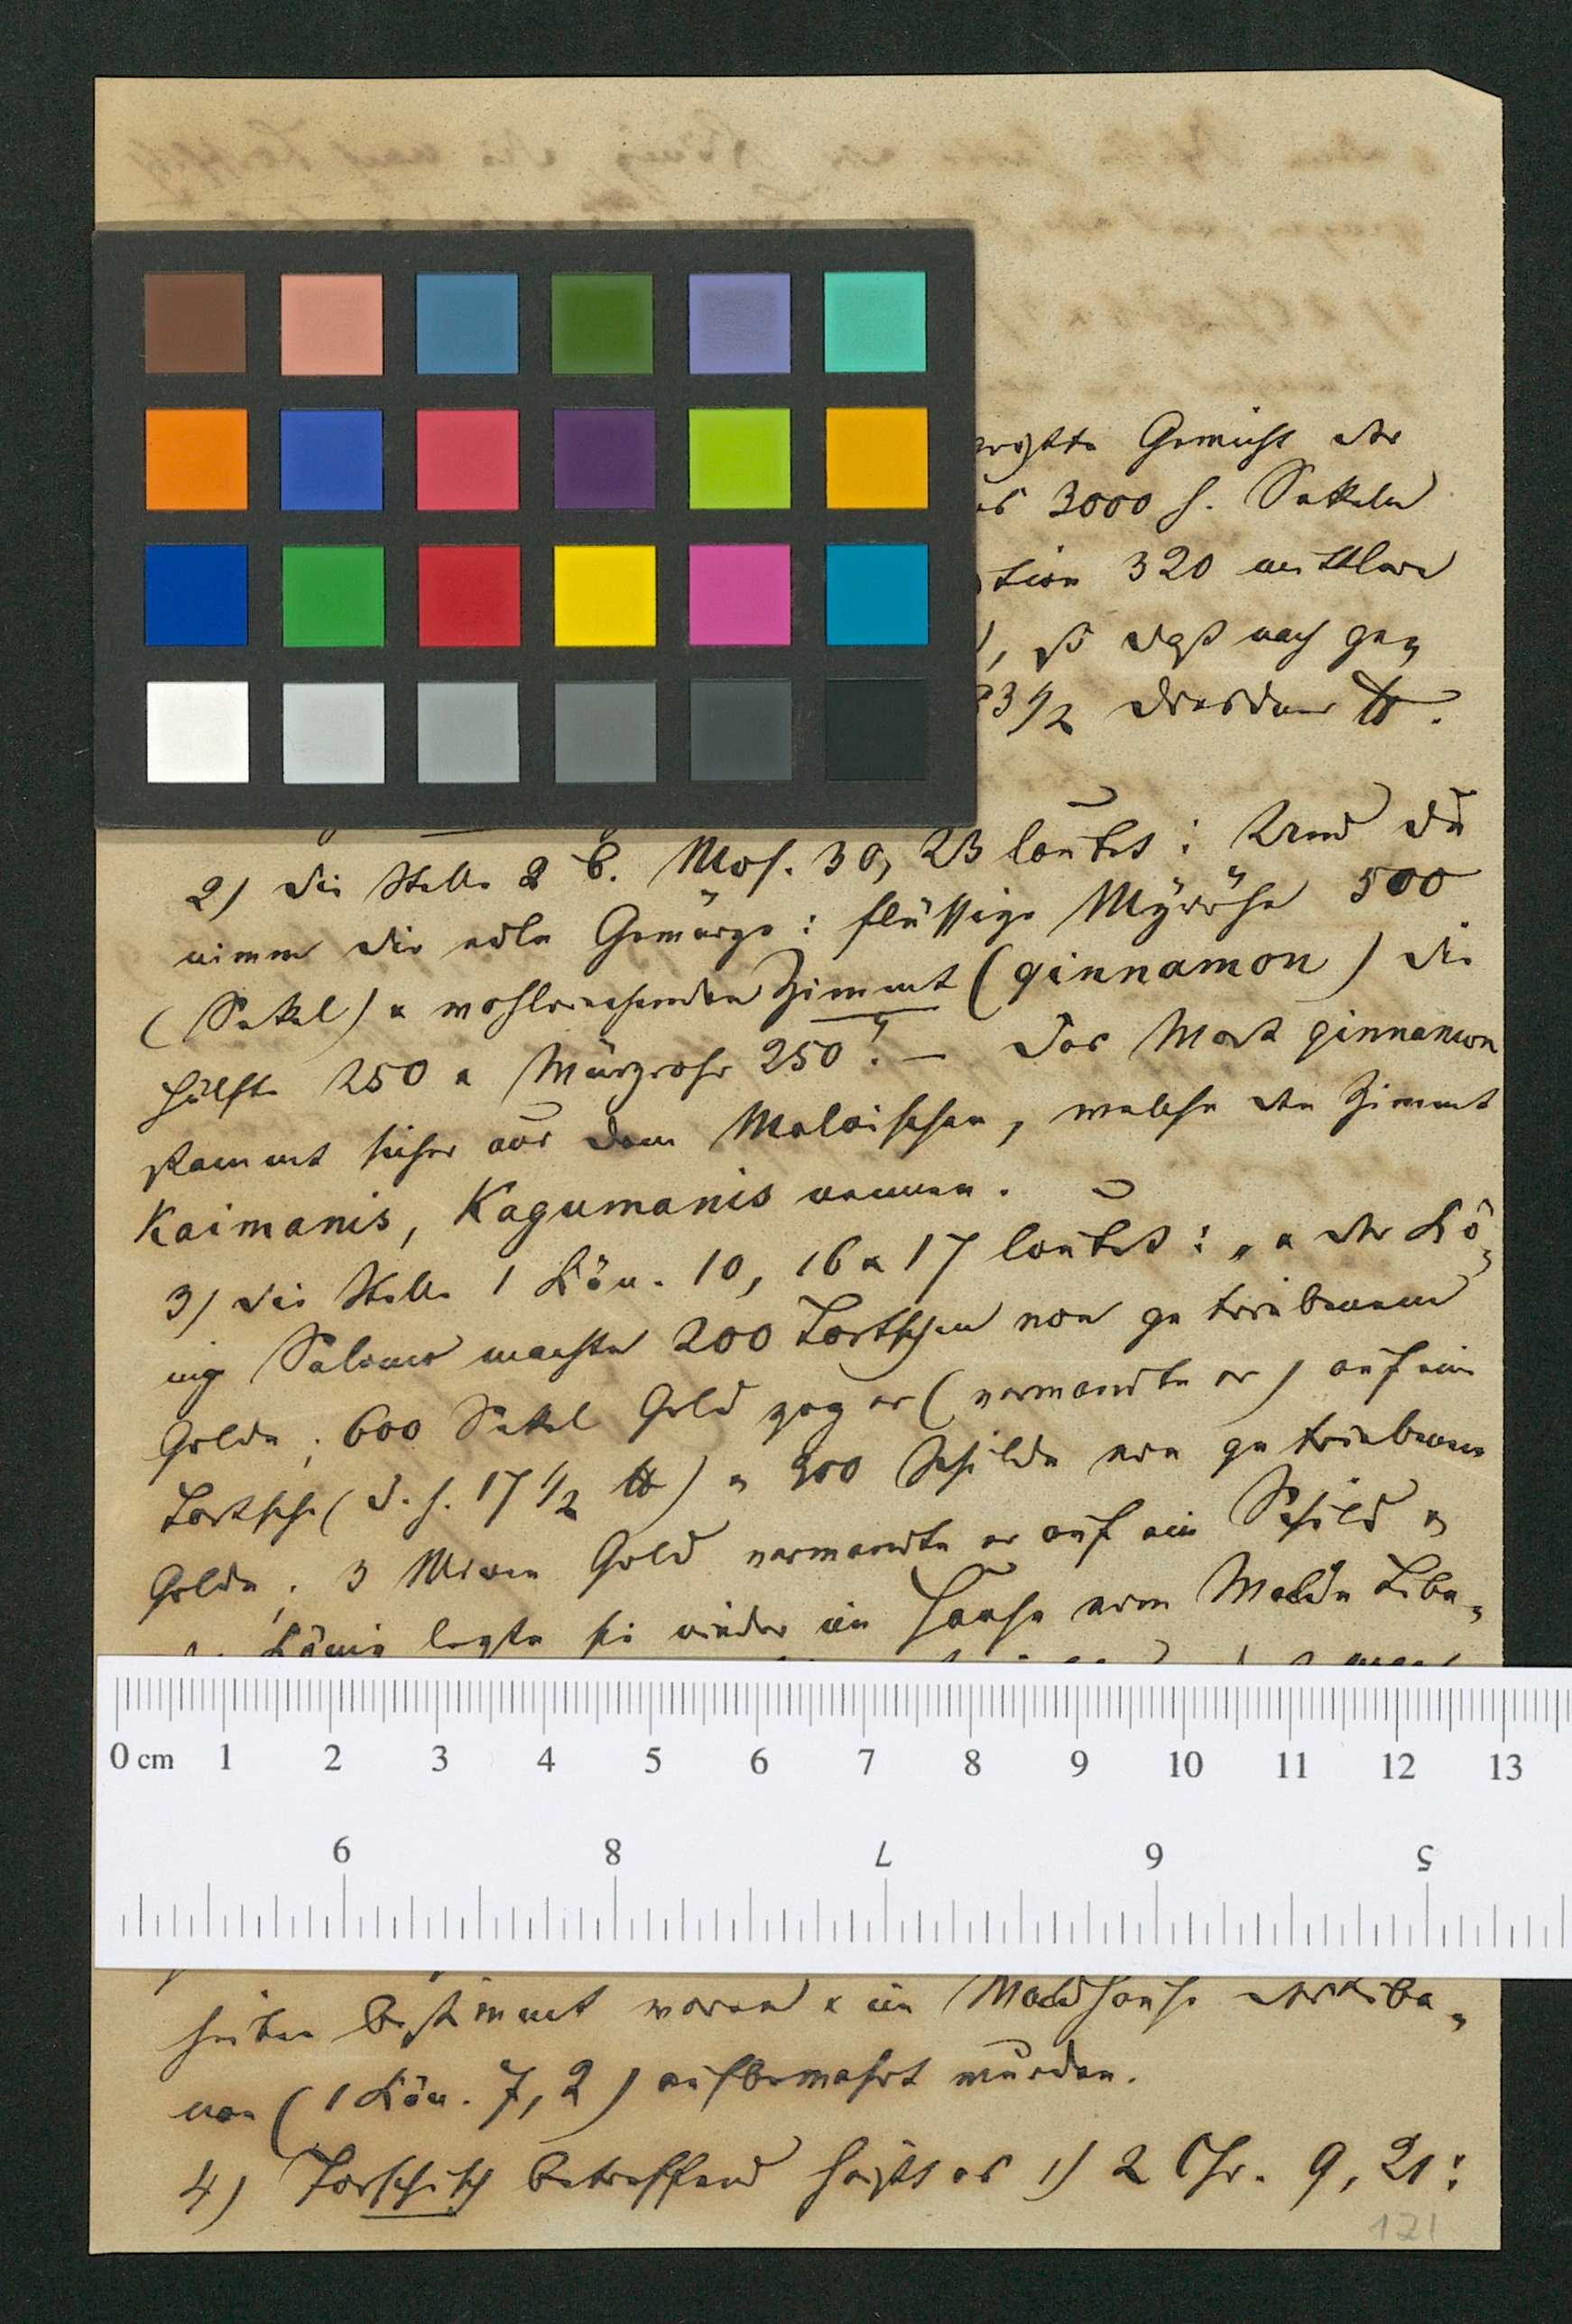 Gewicht der
3000 h. Sekeln
320 mittlere
, so daß nach gen
3 1/2 Dresdner ℔.
2) die Stelle 2 B. Mos. 30, 23 lautet: Und du
nimm dir edle Gewürze: flüssige Myrrhe 500
(Sekel) u wohlriechenden Zimmt (qinnamon) die
Hälfte 250 u Würzrohr 250". — Das Wort qinnamon
stammt sicher aus dem Malaischen, welche den Zimmt
Kaimanis, Kagumanis nennen.
3) die Stelle 1 Kön. 10, 16 u 17 lautet: „u der Kö-
nig Salomo machte 200 Tartschen von getriebenem
Golde; 600 Sekel Gold zog er (verwandte er) auf eine
Tartsche (d. h. 17 1/2 ℔) u 300 Schilde von getriebenem
Golde; 3 Minen Gold verwandte er auf ein Schild u
König legte sie nieder im Hause vom Walde Liba-
0 cm 1 2 3 4 5 6 7 8 9 10 11 12 13
9 8 7 6 5
bestimmt waren u im Waldhause Liba-
non (1 Kön. 7, 2) aufbewahrt wurden.
4) Tarschisch betreffend heißt es 1) 2 Chr. 9, 21:
121